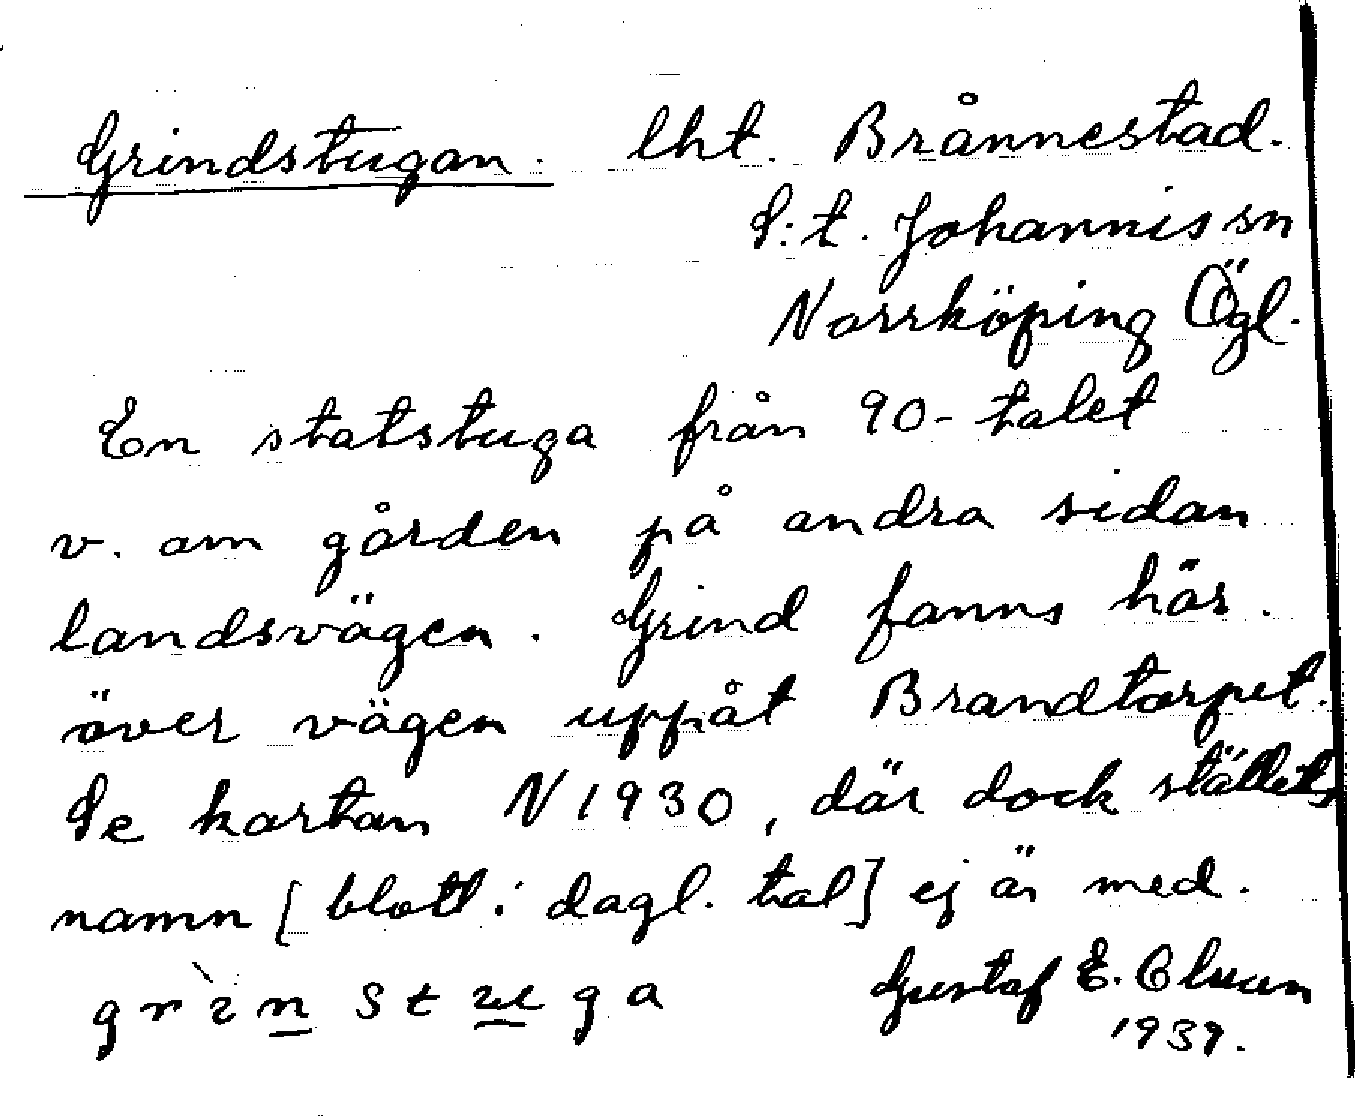 Grindstugan. lht. Brånnestad.
S:t. Johannis sn
Norrköping Ögl.
En statstuga från 90-talet
v. om gården på andra sidan
landsvägen. Grind fanns här.
över vägen uppåt Brandtorpet.
Se kartan N 1930, där dock ställets
namn [blott i dagl. tal] ej är med.
grìn stuga Gustaf E. Olsson
1939.